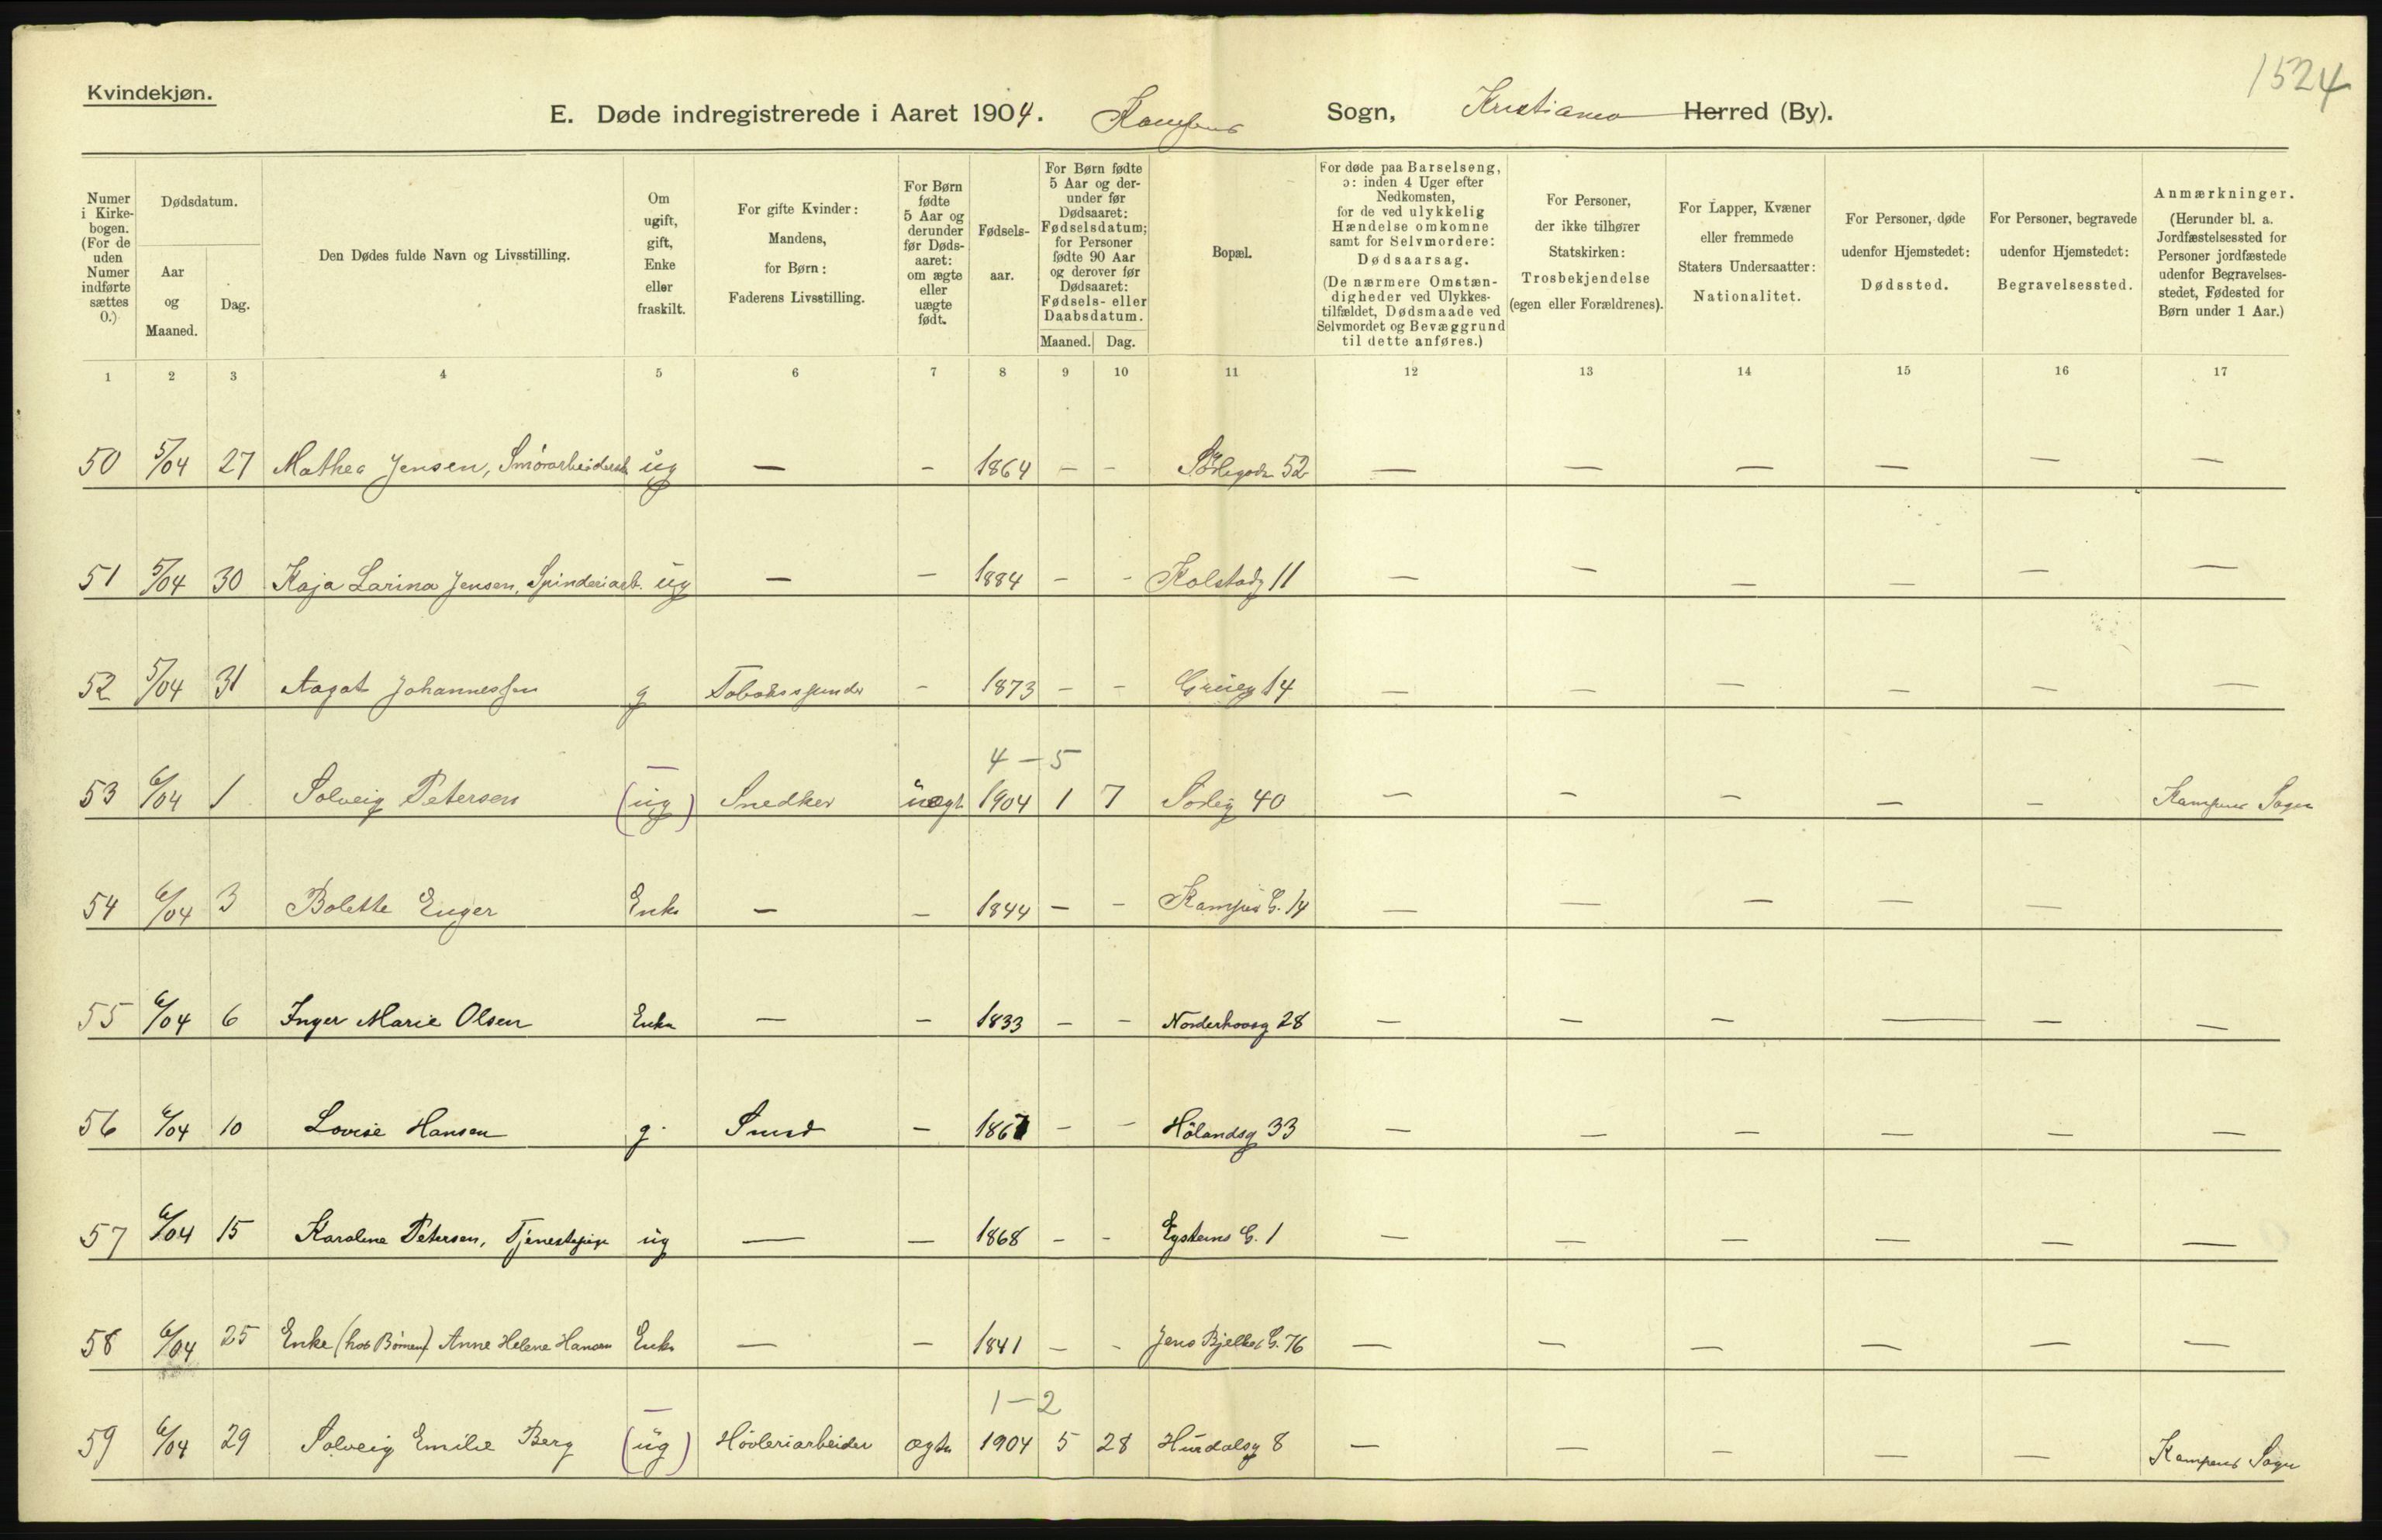 1524
Kvindekjøn.
E. Døde indregistrerede i Aaret 1904. Kampens Sogn, Kristiania Herred (By).
Numer i Kirkebogen. (For de uden Numer indførte sættes 0.)
Dødsdatum.
Aar og Maaned.
Dag.
Den Dødes fulde Navn og Livsstilling.
Om ugift, gift, Enke eller fraskilt.
For gifte Kvinder: Mandens, for Børn: Faderens Livsstilling.
For Børn fødte 5 Aar og derunder før Dødsaaret: om ægte eller uægte født.
Fødselsaar.
For Børn fødte 5 Aar og derunder før Dødsaaret: Fødselsdatum; for Personer fødte 90 Aar og derover før Dødsaaret: Fødsels- eller Daabsdatum.
Maaned. Dag.
Bopæl.
For døde paa Barselseng, ɔ: inden 4 Uger efter Nedkomsten, for de ved ulykkelig Hændelse omkomne samt for Selvmordere: Dødsaarsag. (De nærmere Omstændigheder ved Ulykkestilfældet, Dødsmaade ved Selvmordet og Bevæggrund til dette anføres.)
For Personer, der ikke tilhører Statskirken: Trosbekjendelse (egen eller Forældrenes).
For Lapper, Kvæner eller fremmede Staters Undersaatter: Nationalitet.
For Personer, døde udenfor Hjemstedet: Dødssted.
For Personer, begravede udenfor Hjemstedet: Begravelsessted.
Anmærkninger. (Herunder bl. a. Jordfæstelsessted for Personer jordfæstede udenfor Begravelsesstedet, Fødested for Børn under 1 Aar.)
1 2 3 4 5 6 7 8 9 10 11 12 13 14 15 16 17
50 5/04 27 Mathea Jensen, ug — - 1864 - - 52 — — — — — —
51 5/04 30 Kaja Larina Jensen, Spinderiarb. ug — - 1884 - - Kolstadg 11 — — — — — —
52 5/04 31 Aagot Johannessen g Tobaksspinder - 1873 - - Grüeg 14 — — — — — —
4 — 5
53 6/04 1 Solveig Petersen (ug) Snedker uægt 1904 1 7 Sørlig 40 — — — — — Kampens Sogn
54 6/04 3 Bolette Enger Enke — - 1844 - - Kampens G. 14 — — — — —
55 6/04 6 Inger Marie Olsen Enke — - 1833 - - Norderhovsg 28 — — — — — —
56 6/04 10 Lovise Hansen g. Smed - 1867 - - Hölandsg 33 — — — — — —
57 6/04 15 Karoline Petersen, Tjenestepige ug — - 1868 - - Eystens G. 1 — — — — — —
58 6/04 25 Enke (hos Börnene) Anne Helene Hansen Enke — - 1841 - - Jens Bjelkes G. 76 — — — — — —
1 — 2
59 6/04 29 Solveig Emilie Berg (ug) Hövleriarbeider ægte 1904 5 28 Hurdalsg 8 — — — — — Kampens Sogn